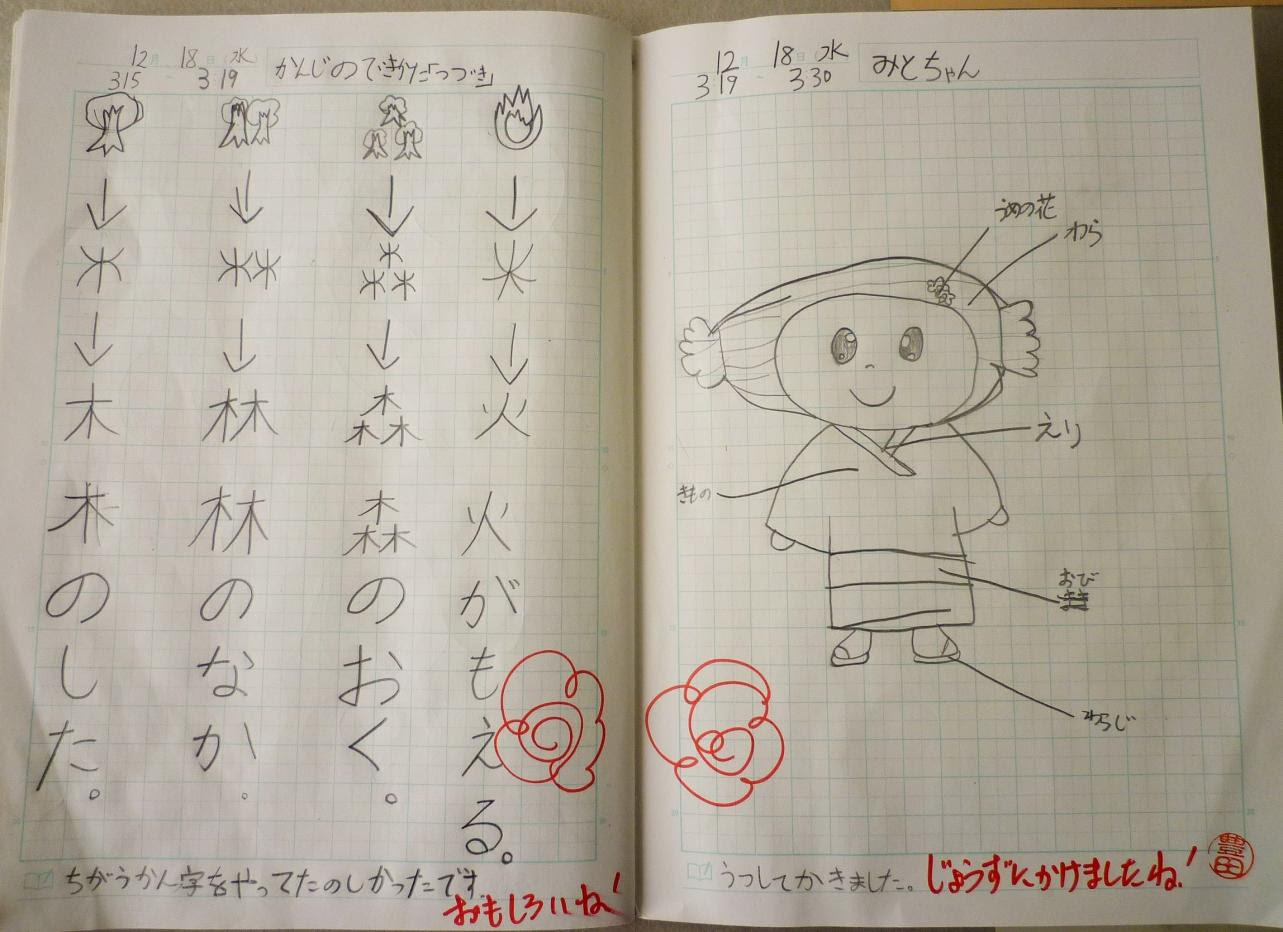 12月 18日(水)
3 15 ~ 3 19
かんじのでき方「つづき」
木 林 森 火
木 林 森 火
火がもえる。
森のおく。
林のなか。
木のした。
ちがうかん字をやってたのしかったです
おもしろいね!
12月 18日(水)
3 19 ~ 3 30
みとちゃん
うめの花
わら
えり
きもの
おび
わらじ
うつしてかきました。
じょうずにかけましたね!
豊田